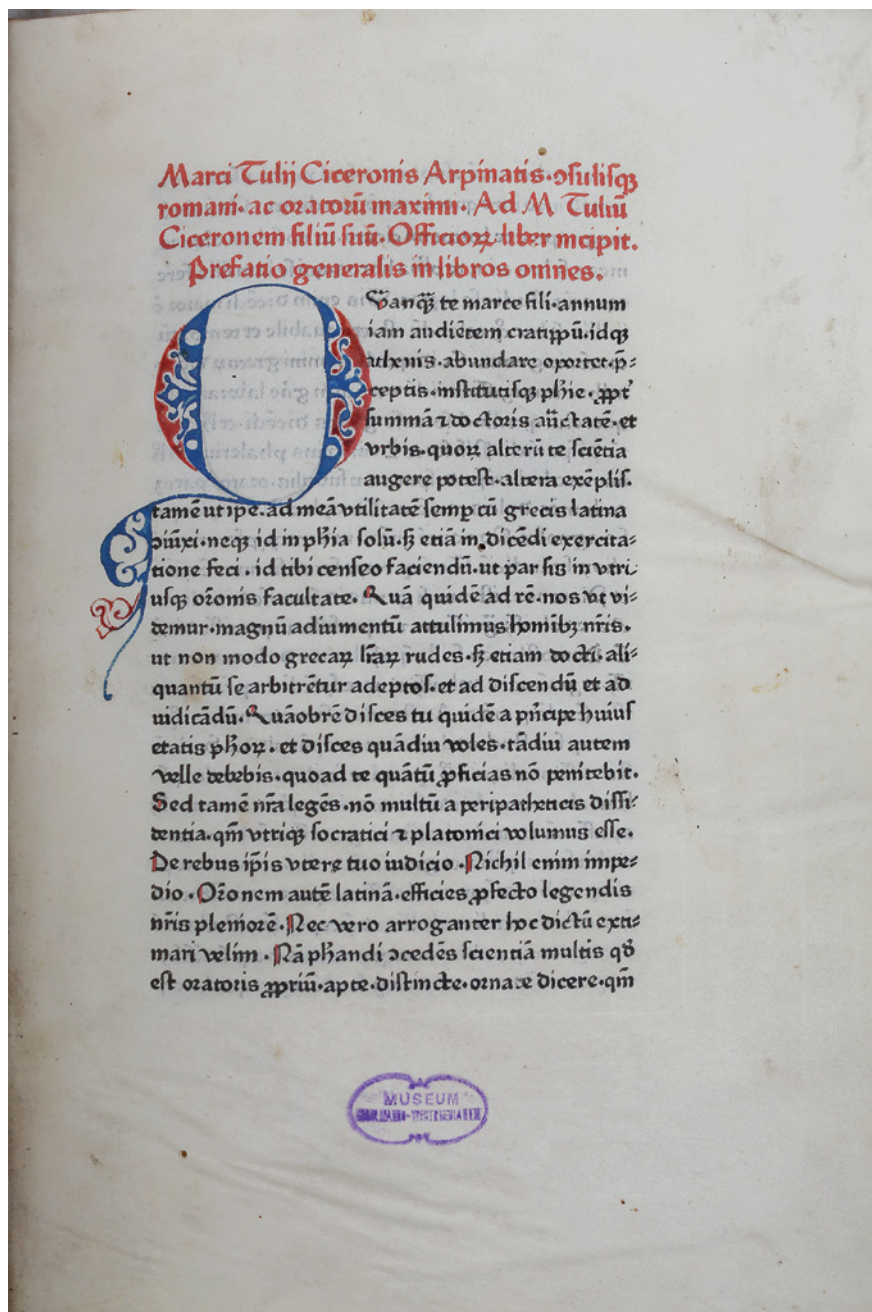 Marci Tulij Ciceronis Arpinatis·ɔſuliſqꝫ
romani·ac oratorū maximi·Ad M Tuliū
Ciceronem filiū ſuū·Officioꝝ liber incipit.
Prefatio generalis in libros omnes.
Quanqȝ̄ te marce fili·annum
iam audiētem cratippū·idqꝫ
athenis·abundare oportet·p̄⸗
ceptis·inſtitutiſqꝫ phīe·ꝓpt̓
ſummā ⁊ doctoris auctatē·et
vrbis·quoꝝ alterū te ſciētia
augere poteſt·altera exēplis.
tamē ut ipe·ad meā vtilitatē ſemꝑ cū grecis latina
ɔiūxi·neqꝫ id in phīa ſolū·ſꝫ etiā in dicēdi exercita⸗
tione feci·id tibi cenſeo faciendū·ut par ſis in vtri
uſqꝫ or̄onis facultate. Quā quidē ad rē·nos vt vi⸗
demur·magnū adiumentū attulimus hominibꝫ nr̄is.
ut non modo grecaꝝ lr̄aꝝ rudes·ſꝫ etiam docti·ali⸗
quantū ſe arbitrētur adeptos·et ad diſcendū et ad
iudicādū. Quāobrē diſces tu quidē a pn̄cipe huius
etatis phoꝝ·et diſces quādiu voles·tādiu autem
velle debebis·quoad te quātū ꝓficias nō penitebit.
Sed tamē nr̄a legēs·nō multū a peripatheticis diſſi⸗
dentia·qm̄ vtriqꝫ ſocratici ⁊ platonici volumus eſſe.
De rebus ip̄is vtere tuo iudicio·Nichil enim impe⸗
dio·Or̄onem autē latinā·efficies ꝓfecto legendis
nr̄is pleniorē·Nec vero arroganter hoc dictū exti⸗
mari velim·Nā phandi ɔcedēs ſcientiā multis qd̓
eſt oratoris ꝓpriū·apte·diſtincte·ornate dicere·qm̄
MUSEUM